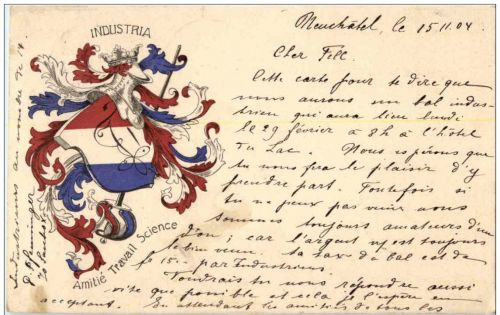 INDUSTRIA
Amitié Travail Science
Neuchâtel, le 15.II.04
Cher Fell
Cette carte pour te dire que
nous aurons un bal indus-
trien qui aura lieu lundi
le 29 février à 8h à l'hôtel
du Lac. Nous espérons que
tu nous fera le plaisir d'y
prendre part. Toutefois si
tu ne peux pas venir nous
sommes toujours amateurs d'un
don, car l'argent est toujours
le bien venu. La taxe du bal est de
15.- par Industrien.
Voudrais tu nous répondre aussi
vite que possible et cela je l'espère en
acceptant. En attendant les amitiés de tous les
Industriens au nombre de 14.